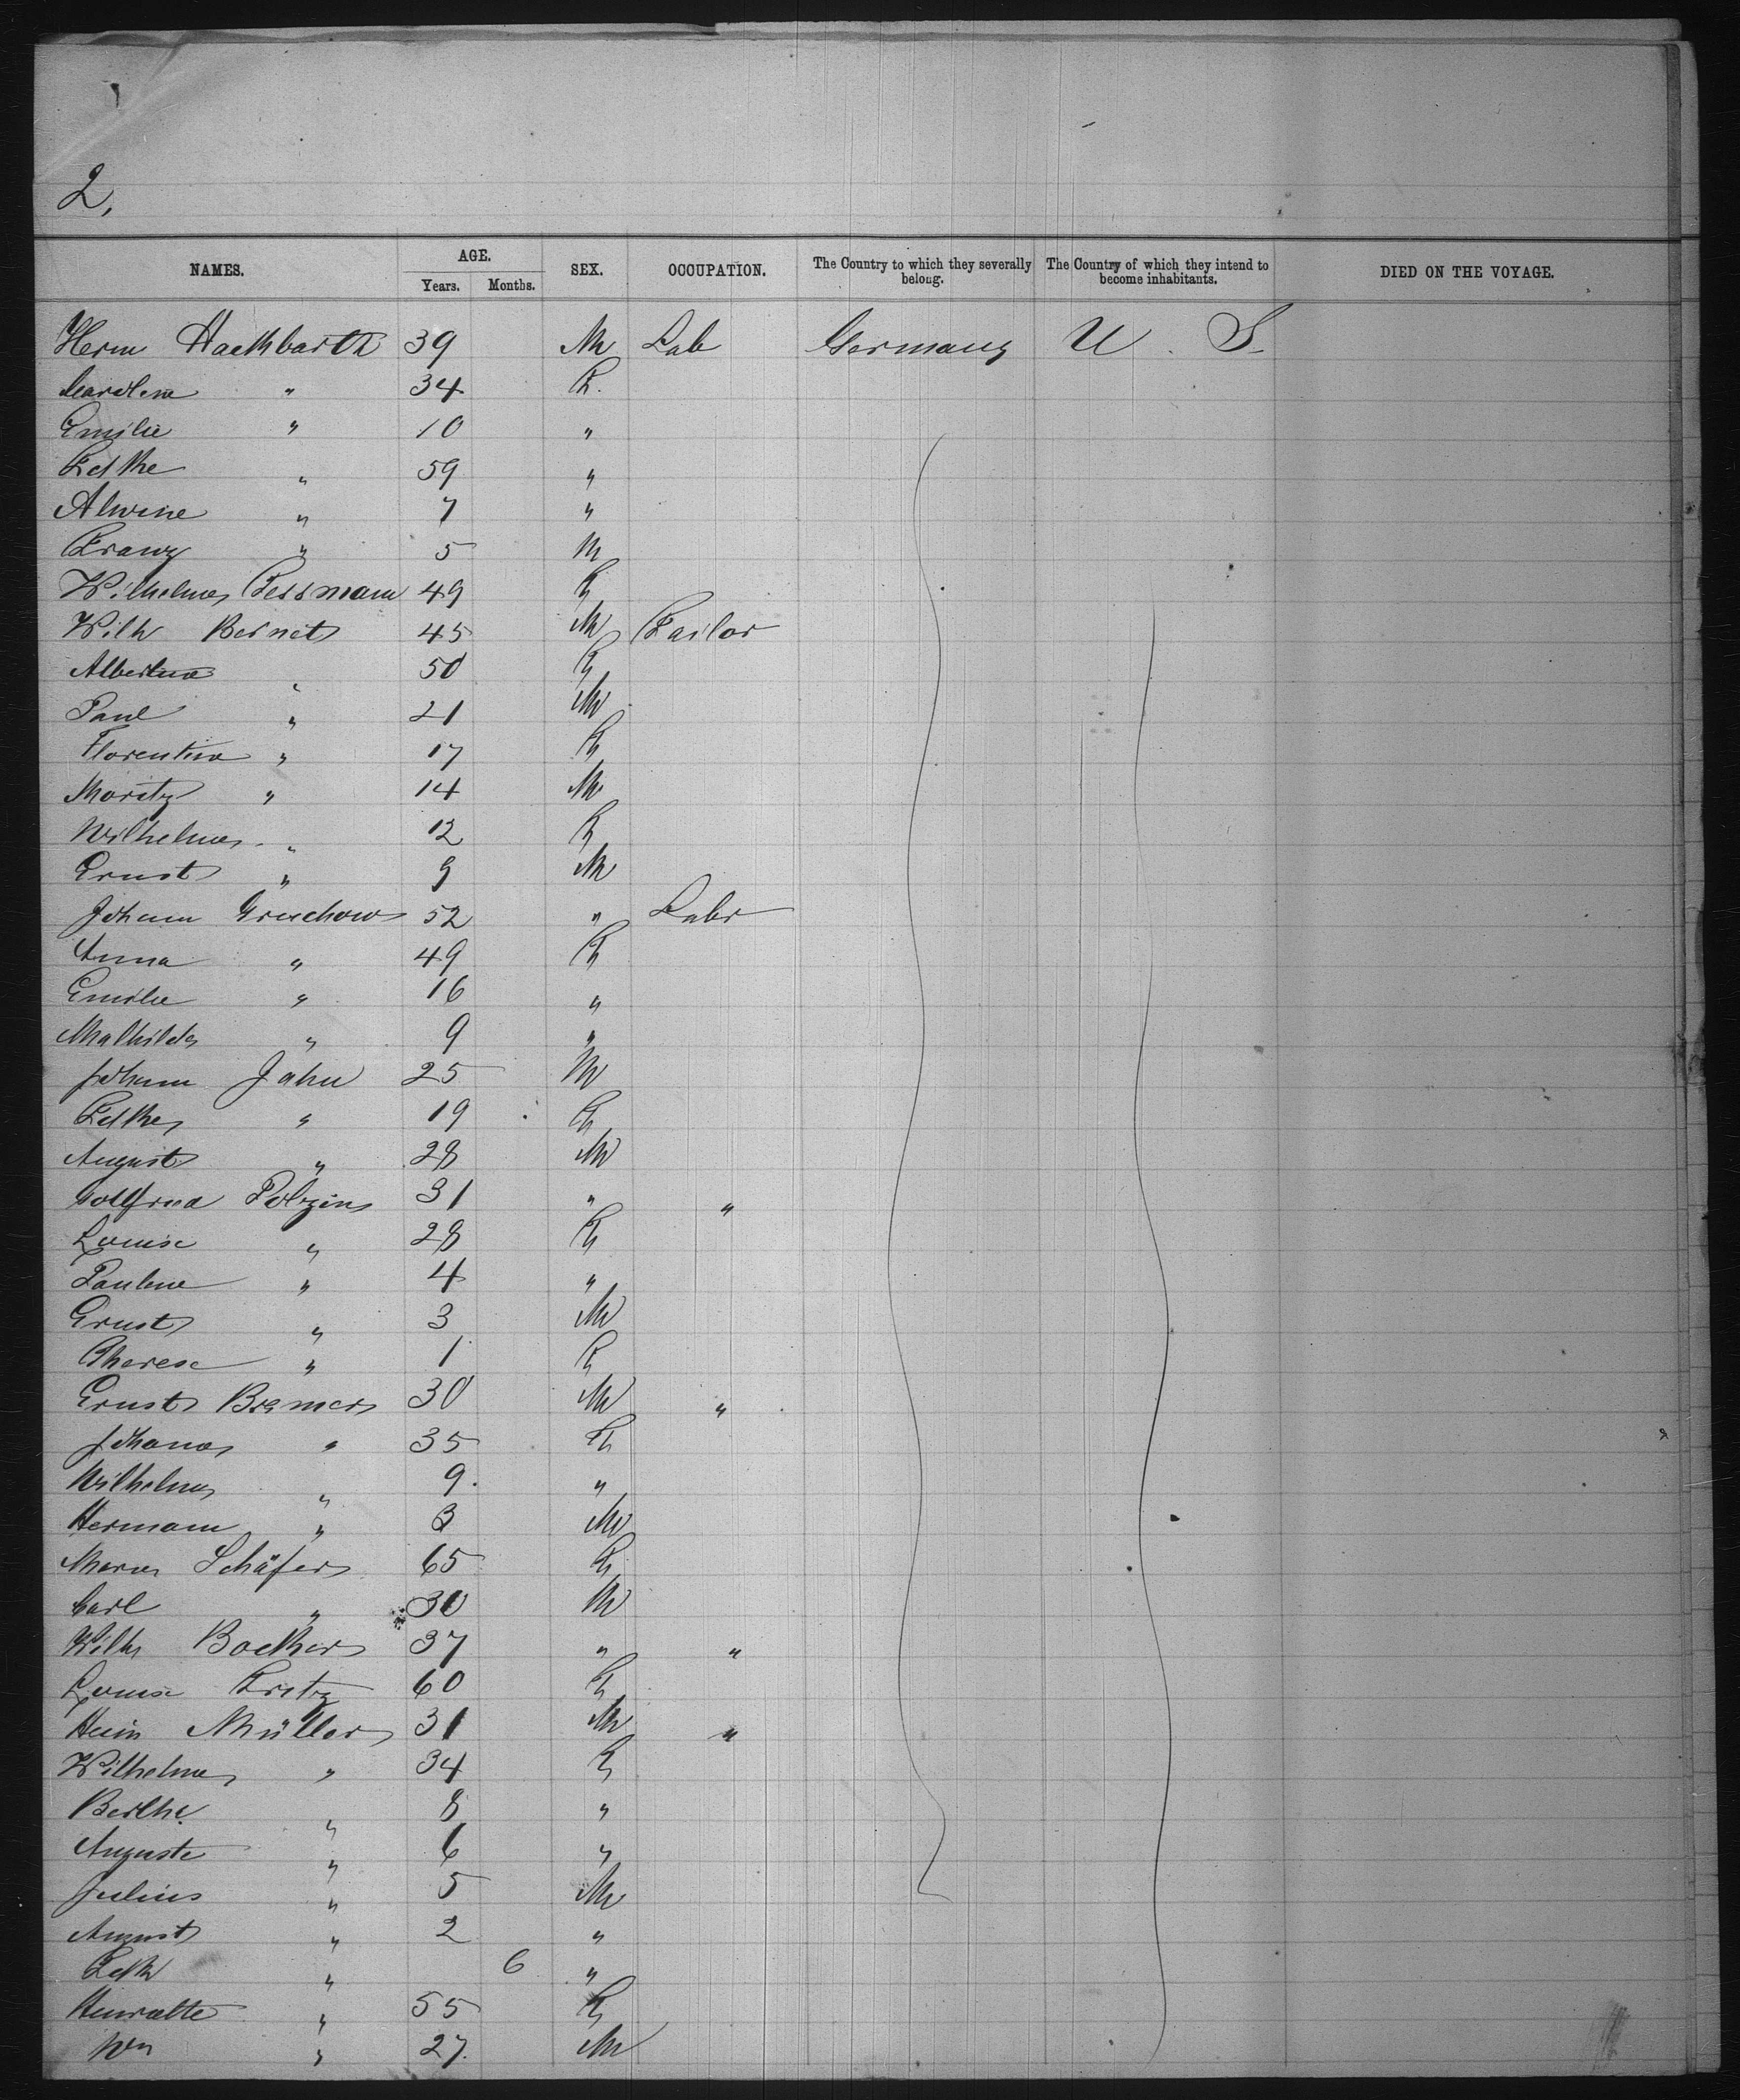 2.
NAMES. AGE. Years. Months. SEX. OCCUPATION. The Country to which they severally belong. The Country of which they intend to become inhabitants. DIED ON THE VOYAGE.
Herm Hackbarth 39 M Lab Germany U. S.
Caroline " 34 F.
Emilie " 10 "
" 59 "
Alwine " 7 "
Franz " 5 M
Wilhelme 49 F
Wilh Bernet 45 M Tailor
Albertine " 50 F
Paul " 21 M
Florentine " 17 F
Moritz " 14 M
Wilhelme " 12 F
Ernst " 9 M
Johann Gruchow 52 " Labr
Anna " 49 F
Emilie " 16 "
Mathilde " 9 "
Johann Jahn 25 M
" 19 F
August " 28 M
Polzin 31 " "
Louise " 28 F
Pauline " 4 "
Ernst " 3 M
Therese " 1 F
Ernst Bremer 30 M "
Johana " 35 F
Wilhelme " 9 "
Hermann " 3 M
Maria Schäfer 65 F
Carl " 30 M
Wilh Boelker 37 " "
Louise 60 F
Hein Müller 31 M "
Wilhelme " 34 F
Berthe " 8 "
Auguste " 6 "
Julius " 5 M
August " 2 "
" 6 "
Henriette " 55 F
Wm " 27 M